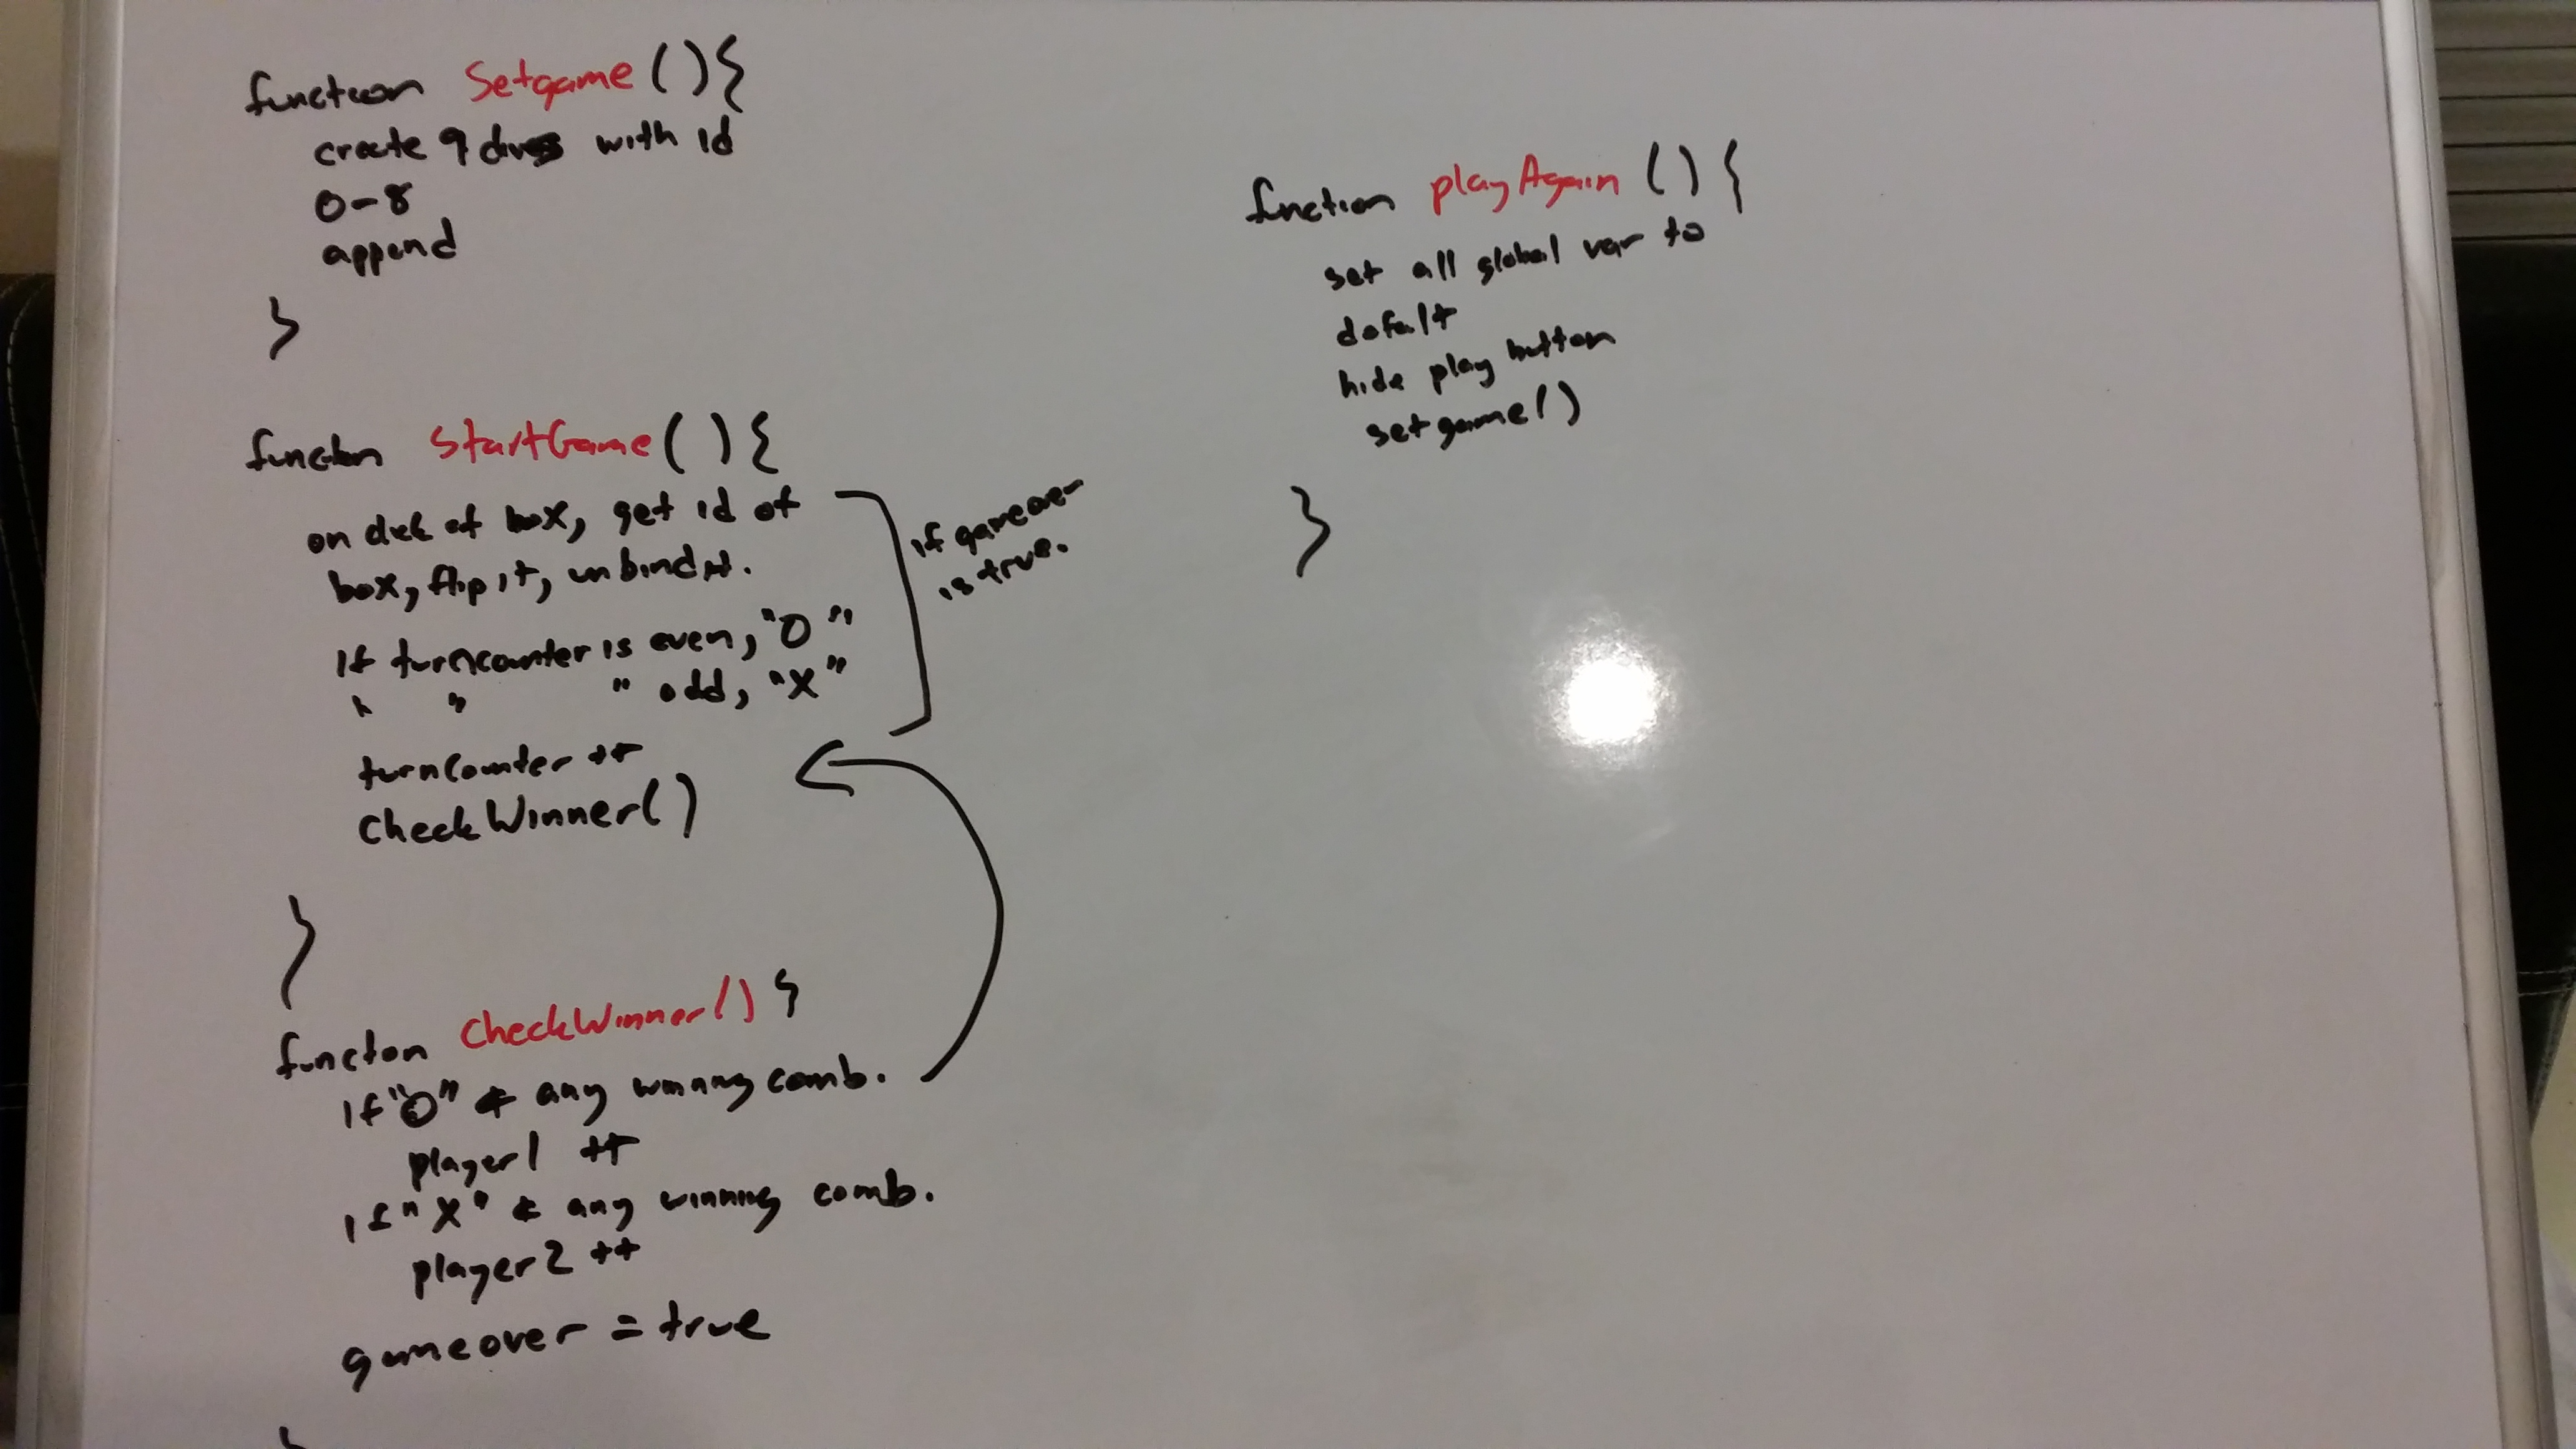 function Setgame(){
create 9 divs with id
0-8
append
}
function StartGame(){
on click of box, get id of
box, flip it, unbind it.
If turncounter is even, "O"
" " " odd, "X"
turnCounter ++
CheckWinner()
}
if gameover
is true.
function CheckWinner(){
If "O" & any winning comb.
player1 ++
If "X" & any winning comb.
player2 ++
gameover = true
}
function playAgain(){
set all global var to
defalt
hide play button
setgame()
}